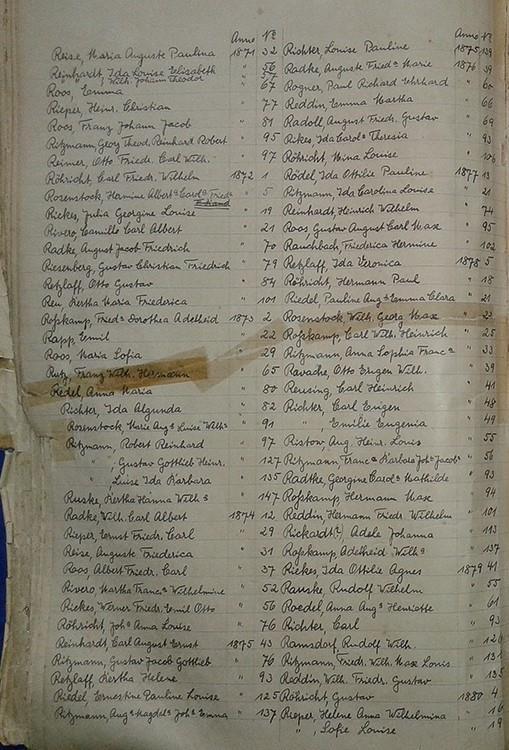 Anno Nº
Reise, Maria Auguste Paulina 1871 32
Reinhardt, Ida Louise Elisabeth " 56
" , Wilh. Johann Theodor " 57
Roos, Emma " 67
Rieper, Heinr. Christian " 77
Roos Franz Johann Jacob " 81
Ritzmann, Georg Theod. Reinhard Robert " 95
Reimer, Otto Friedr. Carl Wilh. " 97
Röhricht, Carl Friedr. Wilhelm 1872 1
Rosenstock, Hermine Albert⁠ª Carolª Fried " 5
Riekes, Julia Georgine Louise " 19
Rivero, Camillo Carl Albert " 21
Radke, August Jacob Friedrich " 70
Riesenberg, Gustav Christian Friedrich " 79
Retzlaff, Otto Gustav " 84
Reu, Bertha Maria Friederica " 101
Roßkamp, Friedª Dorothea Adelheid 1873 2
Rapp, Emil " 22
Roos, Maria Sofia " 29
Rutz, Franz Wilh. Hermann " 65
Redel, Anna Maria " 80
Richter, Ida Algunda " 82
Rosenstock, Marie Augª Luise Wilhª " 91
Ritzmann, Robert Reinhard " 97
" , Gustav Gottlieb Heinr. " 127
" , Luise Ida Barbara " 135
Ruske, Bertha Hanna Wilhª " 147
Radke, Wilh. Carl Albert 1874 12
Rieper, Ernst Friedr. Carl " 29
Reise, Auguste Friederica " 31
Roos, Albert Friedr. Carl " 37
Rivero, Martha Francª Wilhelmine " 52
Riekes, Werner Friedr. Emil Otto " 56
Röhricht, Johª Anna Louise " 76
Reinhardt, Carl August Ernst 1875 43
Ritzmann, Gustav Jacob Gottlieb " 76
Retzlaff, Bertha Helene " 93
Riedel Ernestine Pauline Louise " 125
Ritzmann, Augª Magdelª Johª Emma " 137
Anno Nº
Richter, Louise Pauline 1875 139
Radke, Auguste Friedª Marie 1876 39
Rogner, Paul Richard Ehrhard " 60
Reddin, Emma Martha " 66
Radoll August Friedr. Gustav " 69
Rikes, Ida Carolª Theresia " 93
Röhricht Mina Louise " 106
Rödel, Ida Ottilie Pauline 1877 13
Ritzmann, Ida Carolina Louise " 21
Reinhardt, Heinrich Wilhelm " 74
Roos Gustav August Carl Max " 95
Rauchbach, Friederica Hermine " 102
Retzlaff, Ida Veronica 1878 5
Röhricht, Hermann Paul " 18
Riedel, Pauline Augª Emma Clara " 21
Rosenstock, Wilh. Georg Max " 23
Roßkamp, Carl Wilh. Heinrich " 25
Ritzmann, Anna Sophia Francª " 33
Ravache, Otto Eugen Wilh. " 39
Reusing, Carl Heinrich " 41
Richter, Carl Eugen " 48
" , Emilie Eugenia " 49
Ristow, Aug. Heinr. Louis " 55
Ritzmann, Francª Barbara Johª Jacobª " 56
Radtke, Georgine Carolª Mathilde " 93
Roßkamp, Hermann Max " 94
Reddin, Hermann Friedr. Wilhelm " 101
Rickardt(?), Adele Johanna " 113
Roßkamp Adelheid Wilhª " 137
Riekes, Ida Ottilie Agnes 1879 41
Rauske, Rudolf Wilhelm " 55
Roedel, Anna Augª Henriette " 61
Richter, Carl " 93
Ramsdorf, Rudolf Wilh.
Ritzmann, Friedr. Wilh. Max Louis
Reddin, Wilh. Friedr. Gustav
Röhricht, Gustav 1880 4
Rieper, Helene Anna Wilhelmina " 16
" , Sofie Louise " 19